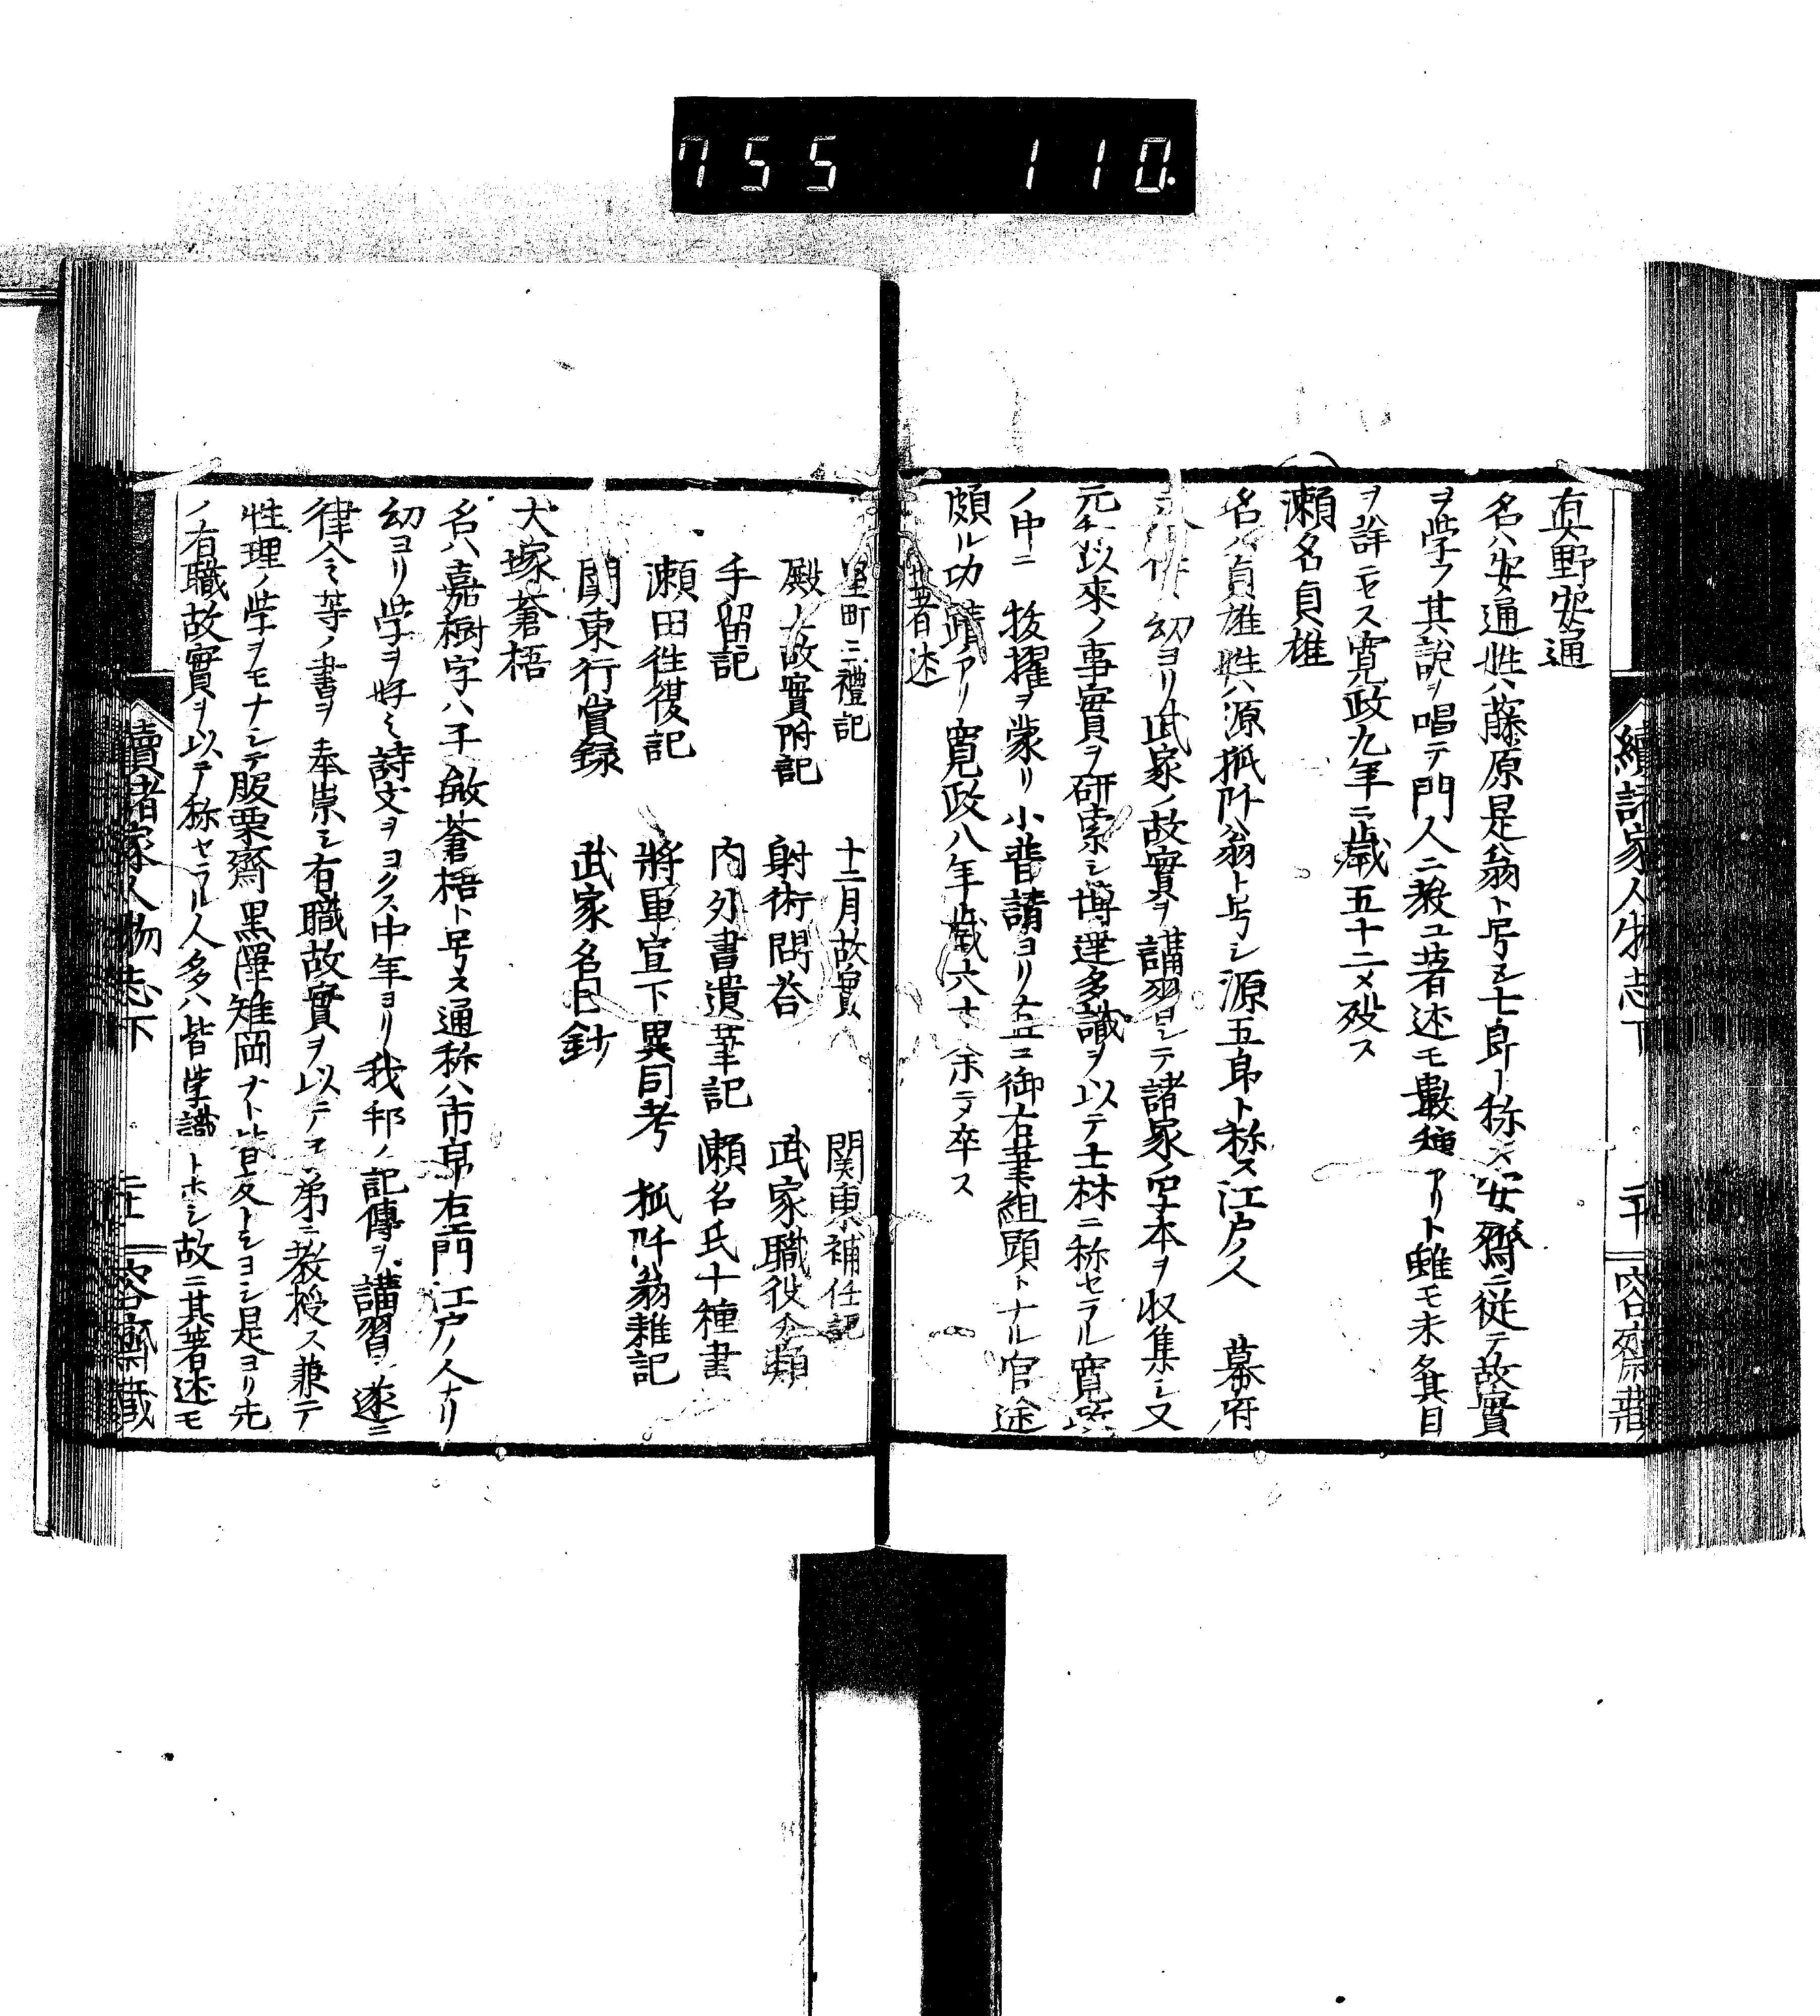 755 110.
續諸家人物志下 二十 容齋藏
真野安通
名ハ安通姓ハ藤原是翁ト号シ七郎ト称ス安齋ニ従テ故實
ヲ学フ其說ヲ唱テ門人ニ教ユ著述モ數種アリト雖モ未タ其目
ヲ詳ニセス寛政九年ニ歳五十二メ歿ス
瀬名貞雄
名ハ貞雄姓ハ源狐阡翁ト号シ源五郎ト称ス江戸ノ人 幕府
幼ヨリ武家ノ故實ヲ講習シテ諸家ノ写本ヲ収集シ又
元和以來ノ事實ヲ研索シ博達多識ヲ以テ士林ニ称セラル寛政
ノ中ニ 抜擢ヲ蒙リ小普請ヨリ直ニ御右筆組頭トナル官途
頗ル功績アリ寛政八年歳六十余ニテ卒ス
著述
室町三禮記 十二月故實 関東補任記
殿上故實附記 射術問荅 武家職役分類
手留記 内外書遺筆記 瀬名氏十種書
瀬田往復記 將軍宣下異同考 狐阡翁雜記
関東行賞録 武家名目鈔
大塚蒼梧
名ハ嘉樹字ハ子敏蒼梧ト号ス通称ハ市郎右ヱ門江戸ノ人ナリ
幼ヨリ学ヲ好ミ詩文ヲヨクス中年ヨリ我邦ノ記傳ヲ講習シ遂ニ
律令等ノ書ヲ奉崇シ有職故實ヲ以テ弟ニ教授ス兼テ
性理ノ学ヲモナシテ服栗齋黒澤雉岡ナト皆交トシヨシ是ヨリ先
ノ有職故實ヲ以テ称セラル人多ハ皆学識トホシ故ニ其著述モ
續諸家人物志下 容齋藏